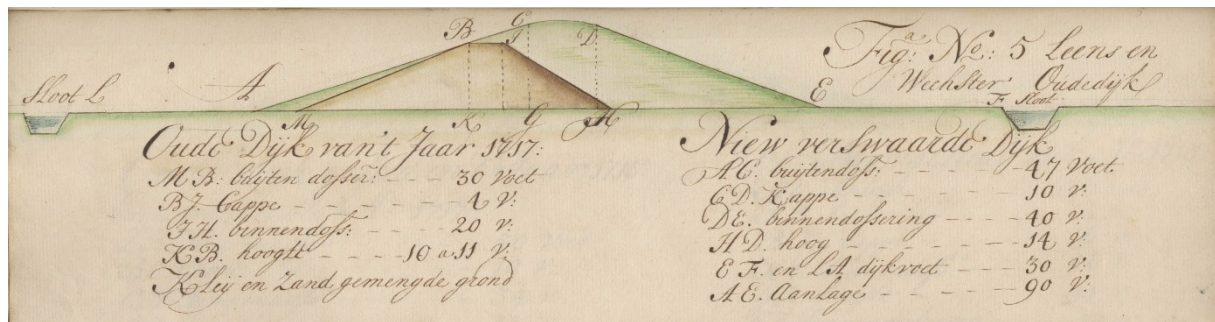 Fig:a No: 5 Leens en
Wechster Oudedijk
Sloot L
A
B
C
J
D
E
F Sloot
M
K
G
H
Oude Dijk van't Jaar 1717:
M B: buijten dosser: - - - - 30 Voet
B J. Cappe - - - - - - - 4 V:
J H. binnendoss: - - - - 20 V:
K B. hoogte - - - - 10 a 11 V:
Kleij en Zand gemengde grond
Niew verswaarde Dijk
A C. buijtendoss: - - - - - 47 Voet
C D. Kappe - - - - - - - 10 V:
D E. binnendossering - - - - 40 V:
H D. hoog - - - - - - - 14 V:
E F. en L A dijkvoet - - - 30 V:
A E. Aanlage - - - - - - 90 V: